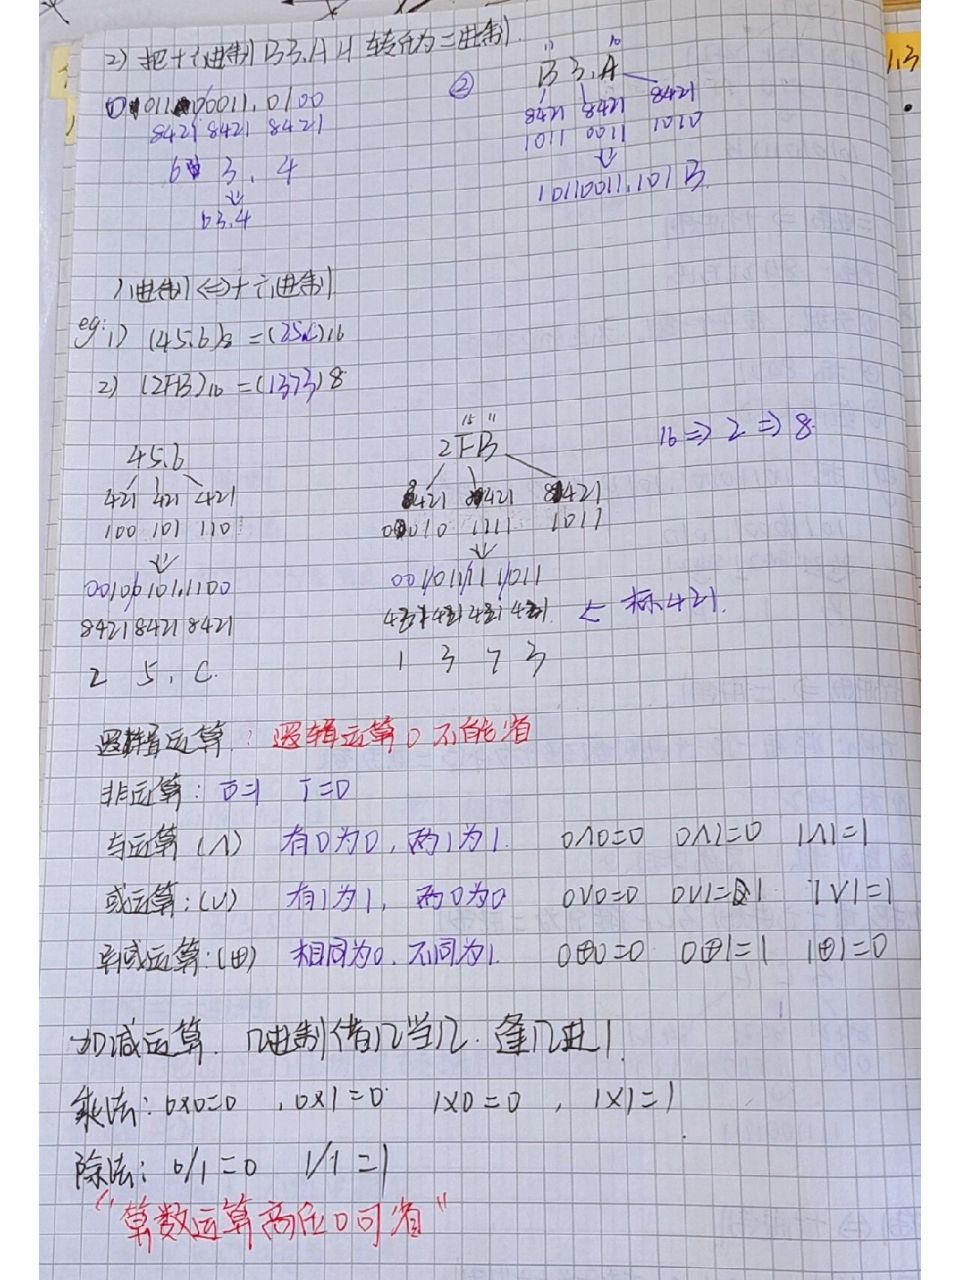 2) 把十六进制B3.AH转化为二进制.
11 10
② B 3. A
8421 8421 8421
1011 0011 1010
⇓
10110011.101B
011 0011.0100
8421 8421 8421
6 3 . 4
⇓
63.4
八进制⇔十六进制
eg: 1) (45.6)8 = (25.C)16
2) (2FB)16 = (1373)8
45.6
421 421 421
100 101 110
⇓
00100101.1100
8421 8421 8421
2 5 . C
15 11
2FB
8421 8421 8421
0010 1111 1011
⇓
001/011/111/011
421 421 421 421 ← 标421.
1 3 7 3
16⇒2⇒8
逻辑运算: 逻辑运算0不能省
非运算: 0̅=1 1̅=0
与运算(∧) 有0为0, 两1为1. 0∧0=0 0∧1=0 1∧1=1
或运算:(∨) 有1为1, 两0为0 0∨0=0 0∨1=1 1∨1=1
异或运算:(⊕) 相同为0. 不同为1. 0⊕0=0 0⊕1=1 1⊕1=0
加减运算. 几进制借几当几. 逢几进1.
乘法: 0×0=0 , 0×1=0 1×0=0 , 1×1=1
除法: 0/1=0 1/1=1
“算数运算高位0可省”
1.3